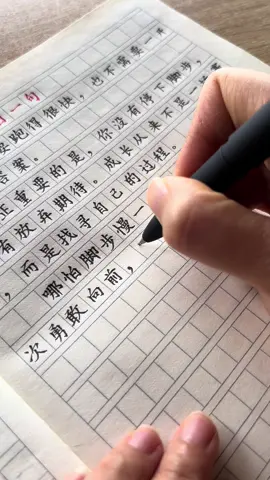 日一句
要跑得很快，也不需要一开
答案。
正重要的是，你没有停下脚步，
有放弃期待。成长从来不是一
，而是找寻自己的过程。
那怕脚步慢一
次勇敢向前，